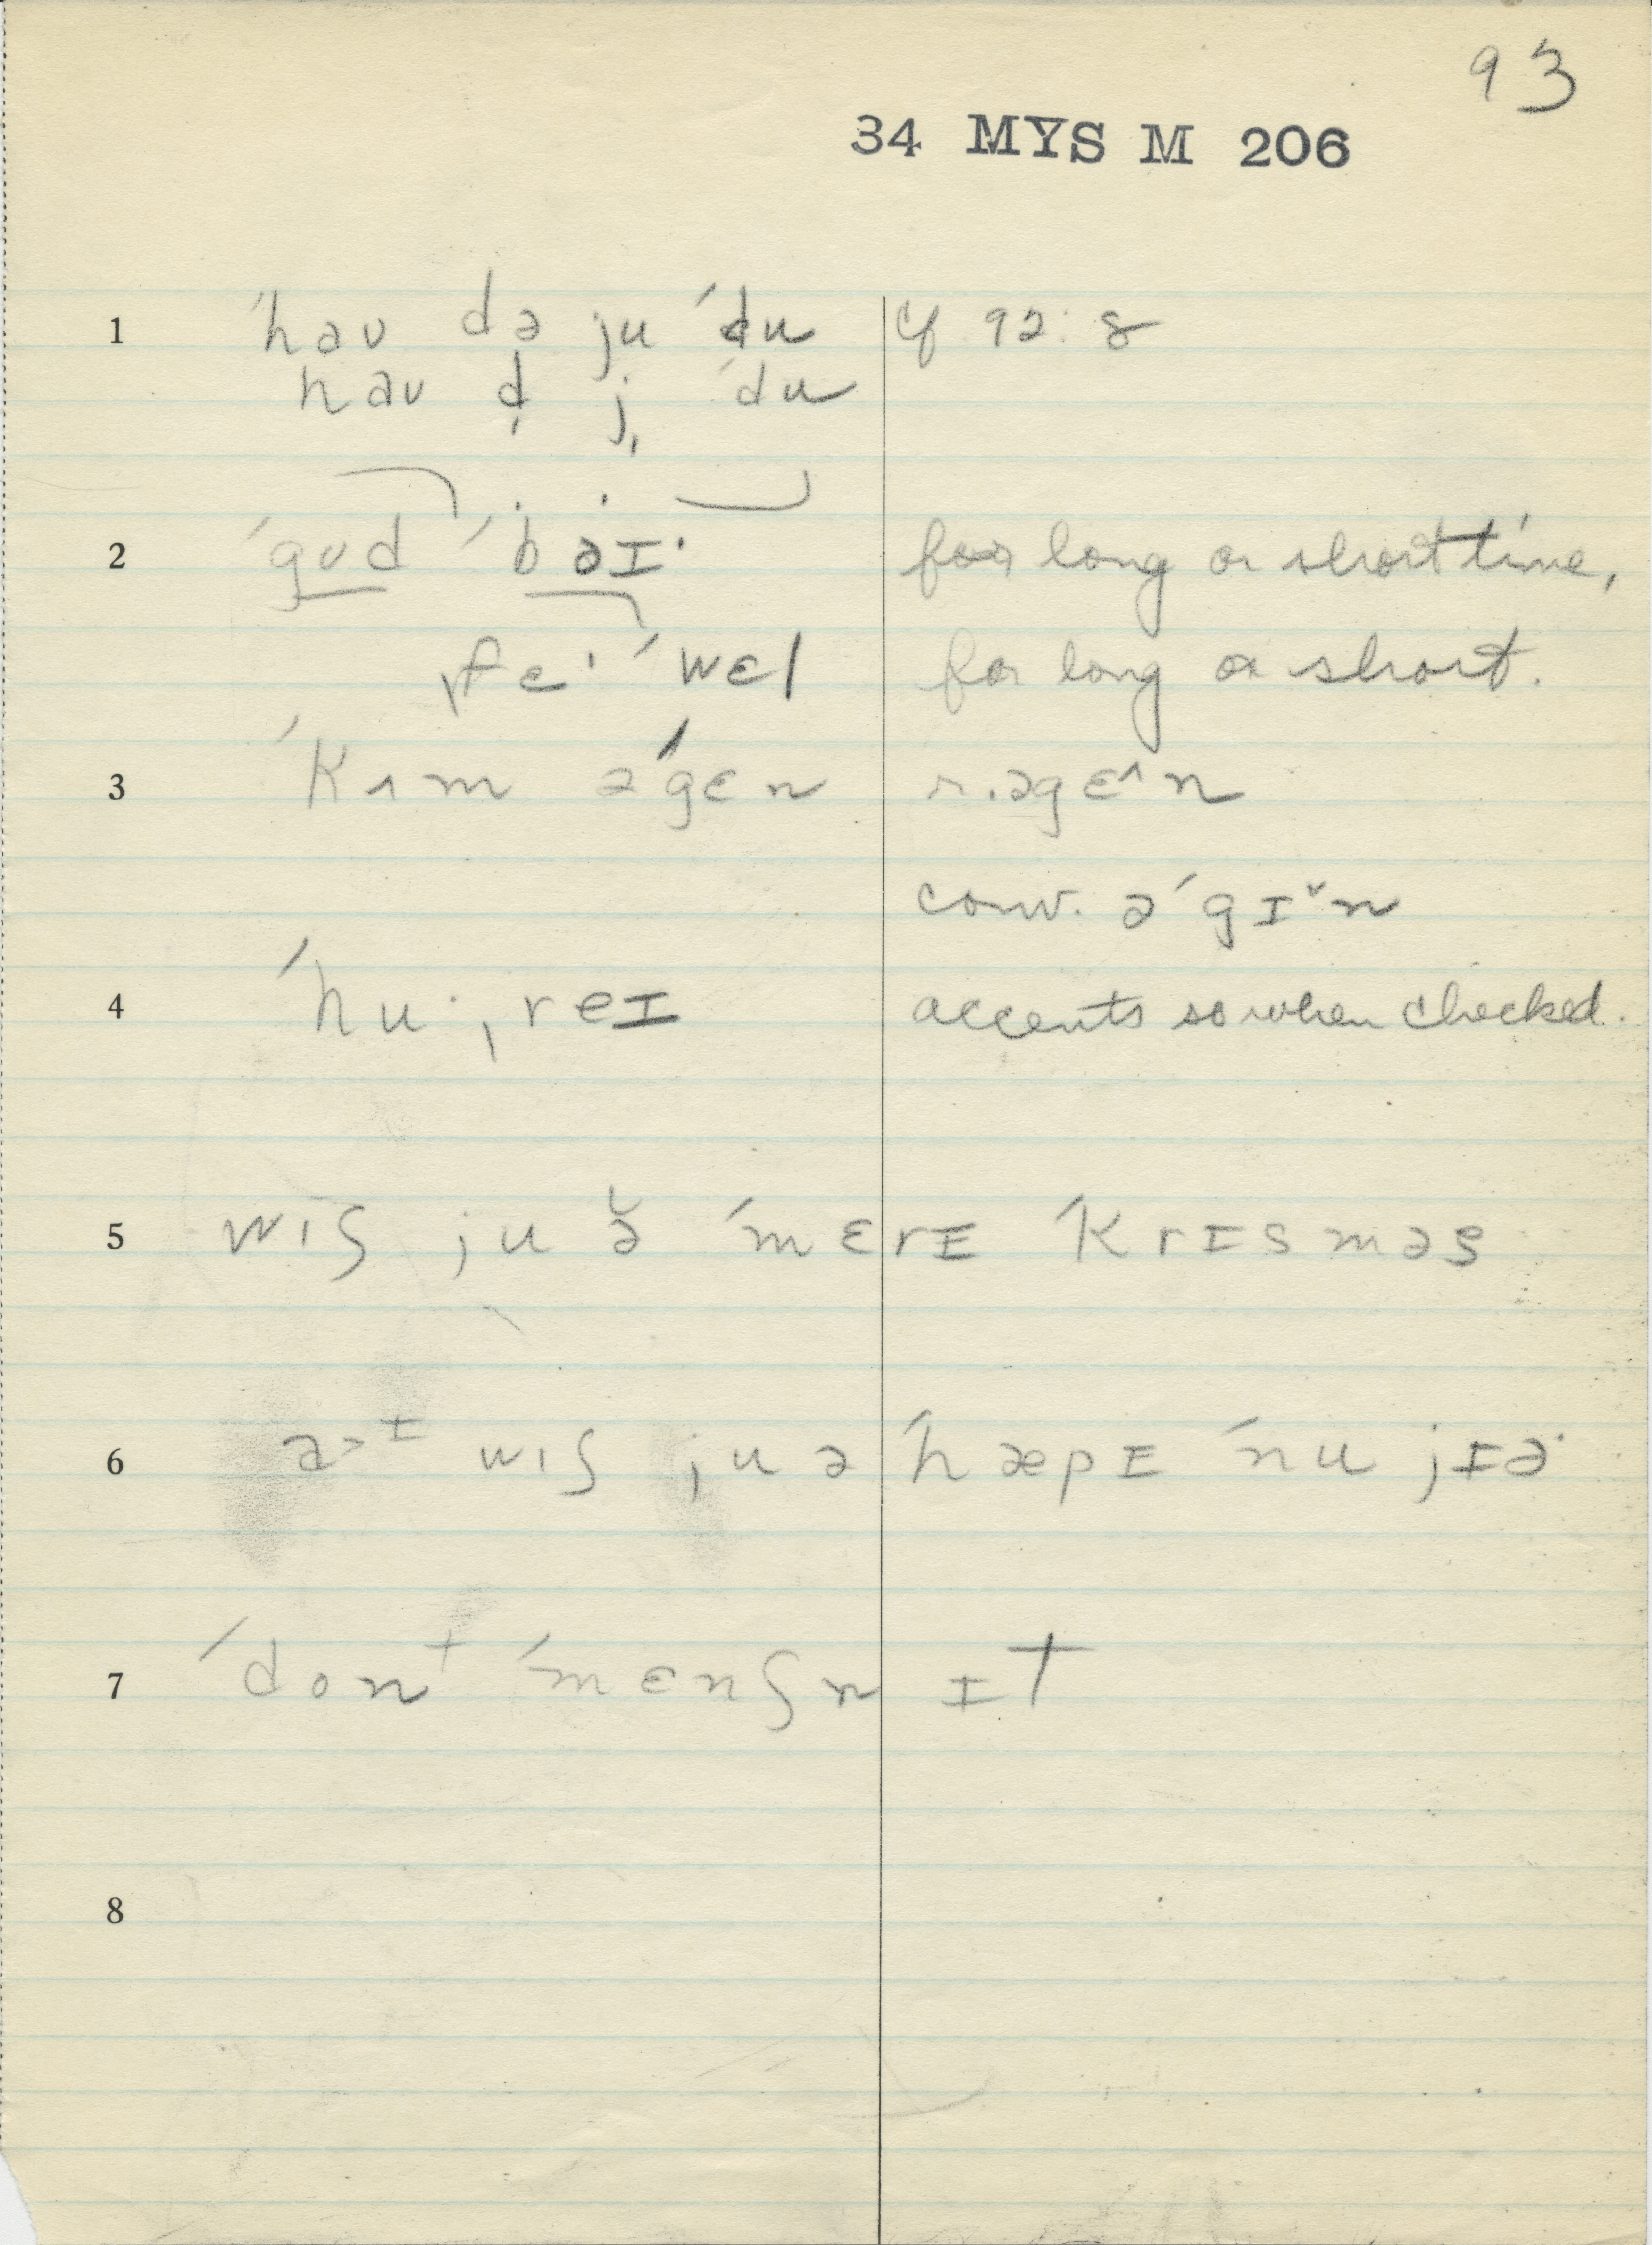 93
34 MYS M 206
1 ˈhaʊ də ju ˈdu cf 92:8
haʊ d̩ j̩ ˈdu
2 ˈgʊd ˈbəɪ· for long or short time,
ˌfɛ· ˈwɛl for long or short.
3 ˈkʌm əˈgɛn r. əgɛ^n
conv. əˈgɪˇn
4 ˈhu· ˌreɪ accents so when checked.
5 wɪʃ ju ə̆ ˈmɛrɪ ˈkrɪsməs
6 a>ɪ wɪʃ ju ə ˈhæpɪ ˈnu jɪə·
7 ˈdonᵗ ˈmɛnʃn ɪt
8